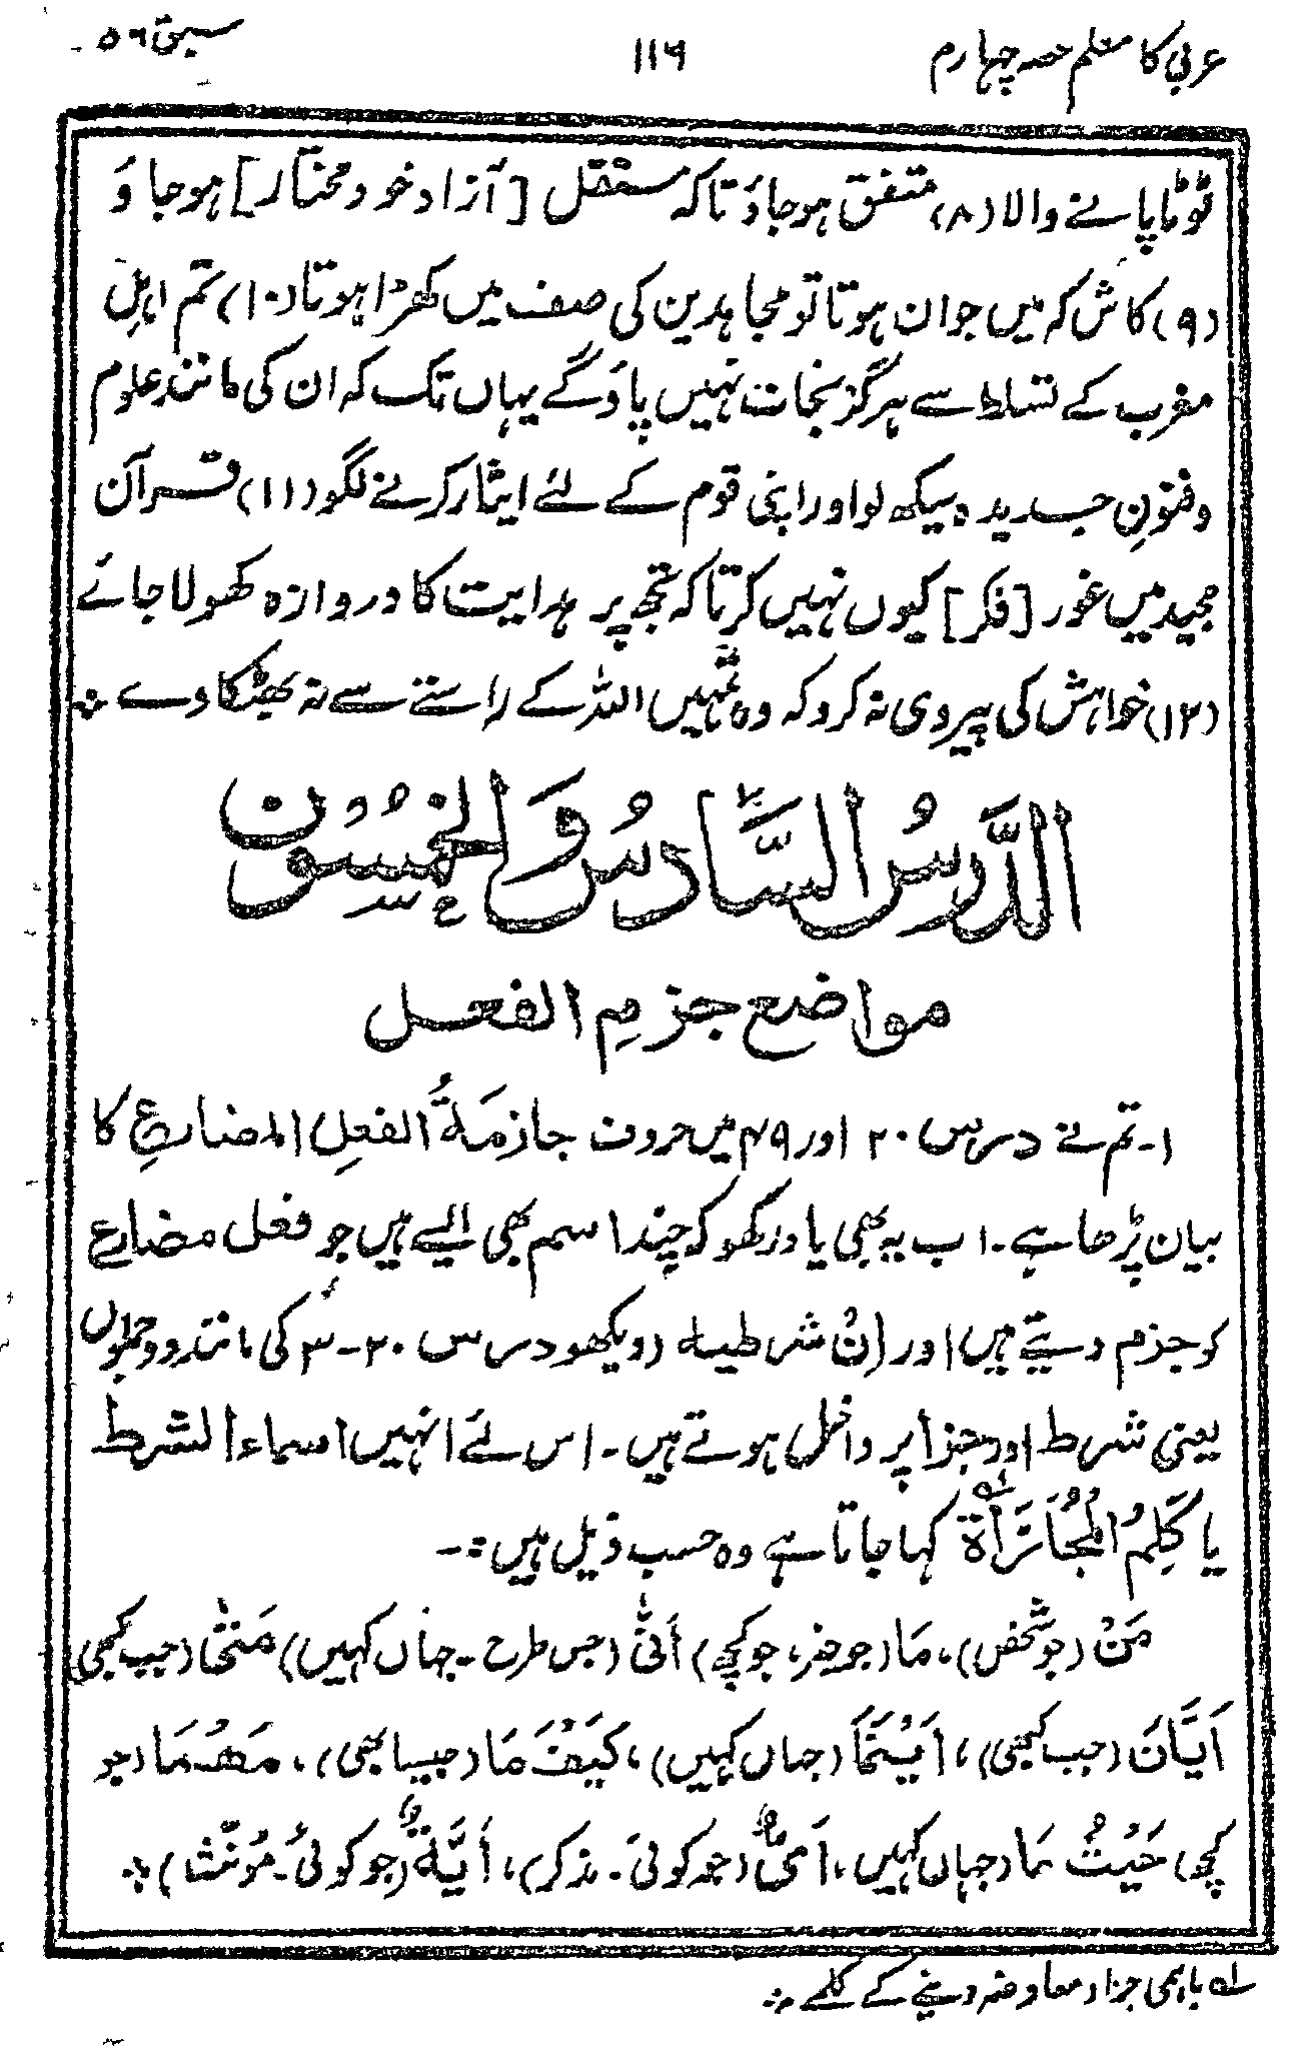 عربی کا معلم حصہ چہارم
۱۱۶
سبق ۵۶
ٹوٹا پانے والا (۸) متفق ہوجاؤ تاکہ مستقل [آزاد خود مختار] ہوجاؤ
(۹) کاش کہ میں جوان ہوتا تو مجاہدین کی صف میں کھڑا ہوتا (۱۰) تم اہلِ
مغرب کے تسلط سے ہرگز نجات نہیں پاؤ گے یہاں تک کہ ان کی مانند علوم
وفنونِ جدیدہ سیکھ لو اور اپنی قوم کے لئے ایثار کرنے لگو (۱۱) قرآن
مجید میں غور [فکر] کیوں نہیں کرتا کہ تجھ پر ہدایت کا دروازہ کھولا جائے
(۱۲) خواہش کی پیروی نہ کرو کہ وہ تمہیں اللہ کے راستے سے نہ بھٹکا دے ؞
الدَّرْسُ السَّادِسُ وَالخَمْسُوْنَ
مواضع جزمِ الفعل
۱۔ تم نے درس ۲۰ اور ۴۹ میں حروف جازمَۃُ الفعلِ المضارعِ کا
بیان پڑھا ہے۔ اب یہ بھی یاد رکھو کہ چند اسم بھی ایسے ہیں جو فعل مضارع
کو جزم دیتے ہیں اور اِنْ شرطیہ (دیکھو درس ۲۰-۳ کی مانند دو جملوں
یعنی شرط اور جزا پر داخل ہوتے ہیں۔ اس لئے انہیں اسماء الشرط
یا کَلِمُ المُجَازَاۃ لہ کہا جاتا ہے وہ حسب ذیل ہیں :۔
مَنْ (جو شخص)، مَا (جو چیز، جو کچھ) أَنّٰی (جس طرح۔ جہاں کہیں) مَتٰی (جب کبھی)
اَیَّانَ (جب کبھی)، اَیْنَمَا (جہاں کہیں)، کَیْفَمَا (جیسا بھی)، مَهْمَا (جو
کچھ) حَیْثُمَا (جہاں کہیں، اَیٌّ (جو کوئی۔ مذکر)، أَیَّةٌ (جو کوئی۔ مؤنث) ؞
لہ باہمی جزا و معاوضہ دینے کے کلمے ؞